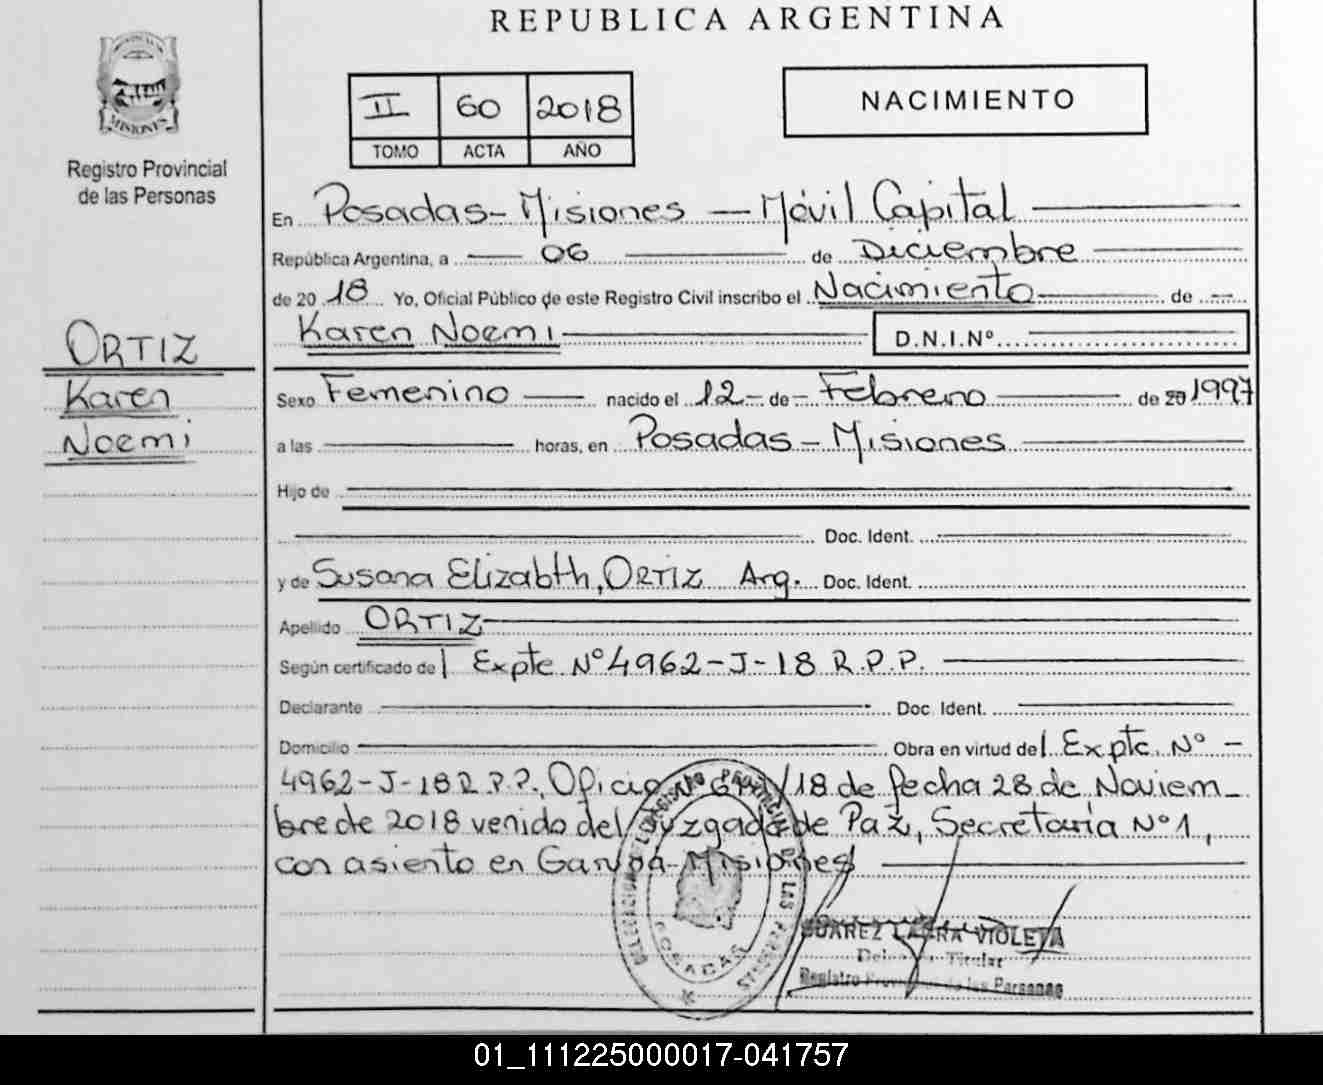 REPUBLICA ARGENTINA
MISIONES
Registro Provincial
de las Personas
II 60 2018
TOMO ACTA AÑO
NACIMIENTO
En Posadas - Misiones — Móvil Capital
República Argentina, a 06 de Diciembre
de 20 18 Yo, Oficial Público de este Registro Civil inscribo el Nacimiento de
Karen Noemi D.N.I.Nº
ORTIZ
Karen
Noemi
Sexo Femenino nacido el 12 - de - Febrero de 20 1997
a las horas, en Posadas - Misiones
Hijo de
Doc. Ident.
y de Susana Elizabth, ORTIZ Arg. Doc. Ident.
Apellido ORTIZ
Según certificado de Expte Nº 4962-J-18 R.P.P.
Declarante Doc. Ident.
Domicilio Obra en virtud de Expte. Nº -
4962-J-18 R.P.P., Oficio Nº /18 de fecha 28 de Noviem-
bre de 2018 venido del Juzgado de Paz, Secretaría Nº 1,
con asiento en Garupá - Misiones
POSADAS
SUAREZ LAURA VIOLETA
Titular
Registro Provincial de las Personas
01_111225000017-041757